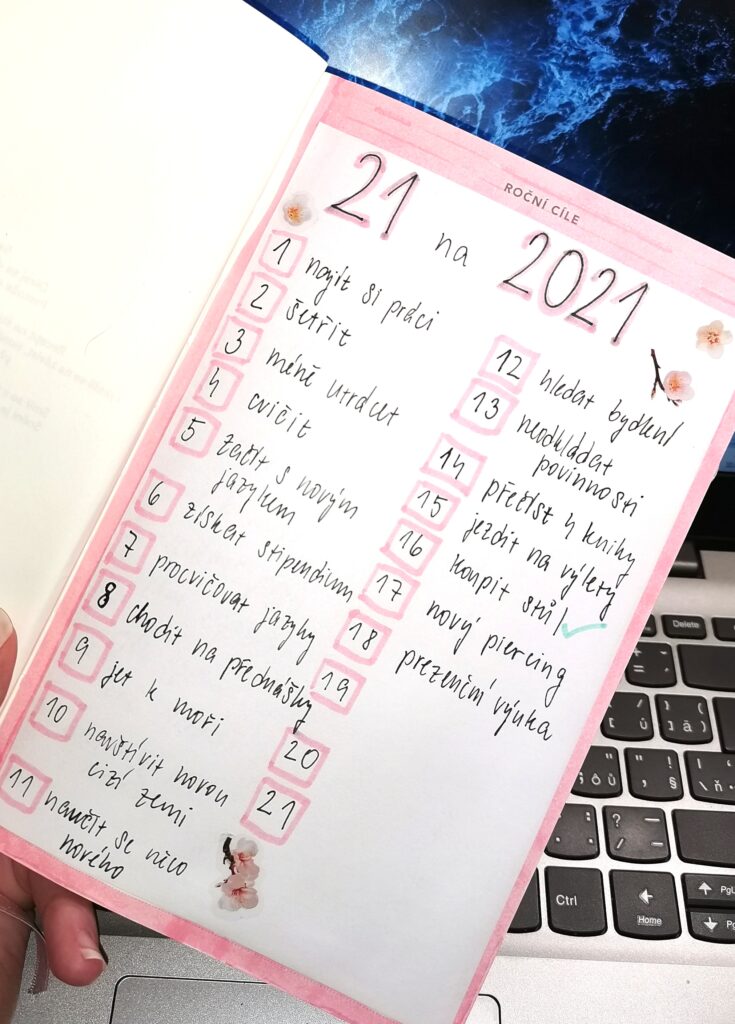 ROČNÍ CÍLE
21 na 2021
1 najít si práci
2 šetřit
3 méně utrácet
4 cvičit
5 začít s novým
jazykem
6 získat stipendium
7 procvičovat jazyky
8 chodit na přednášky
9 jet k moři
10 navštívit novou
cizí zemi
11 naučit se něco
nového
12 hledat bydlení
13 neodkládat
povinnosti
14 přečíst 4 knihy
15 jezdit na výlety
16 koupit stůl
17 nový piercing
18 prezenční výuka
19
20
21
Delete
Ctrl
Home
PgU
Pg